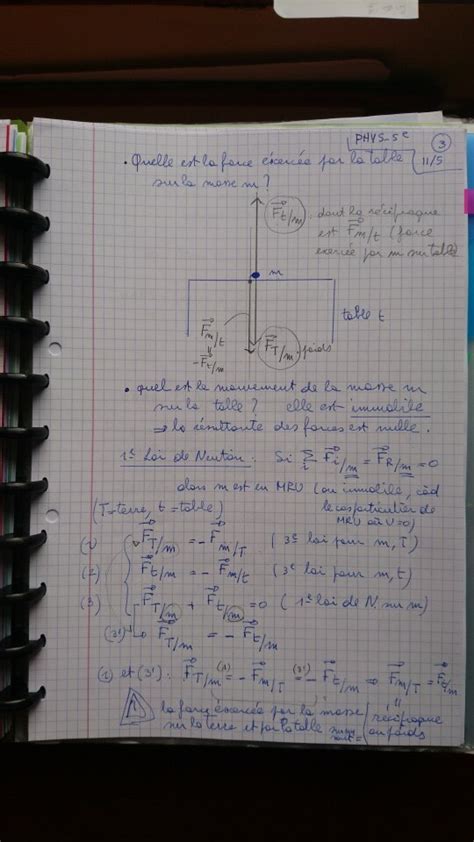 PHYS_5e
3
11/5
• Quelle est la force exercée par la table
sur la masse m ?
F t/m, dont la réciproque
est F m/t (force
exercée par m sur table)
m
table t
F m/t
-F t/m
F T/m = poids
• quel est le mouvement de la masse m
sur la table ? elle est immobile
⇒ la résultante des forces est nulle.
1e Loi de Newton : Si ∑ F i/m = F R/m = 0
i
alors m est en MRU (ou immobile, càd
le cas particulier de
MRU où V=0)
(T=terre, t=table)
(1) F T/m = - F m/T (3e loi pour m, T)
(2) F t/m = - F m/t (3e loi pour m, t)
(3) F T/m + F t/m = 0 (1e loi de N. sur m)
(3') F T/m = - F t/m
(1) et (3') : F T/m (1)= - F m/T (3')= - F t/m ⇒ F m/T = F t/m
la force exercée par la masse
sur la terre et par la table
réciproque
au poids